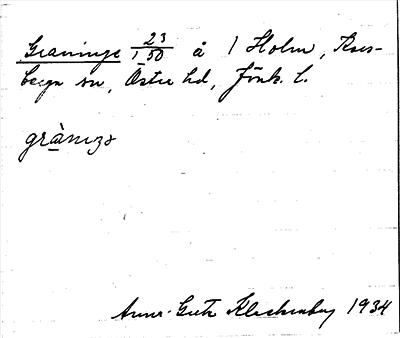 Graninge 23/1 50 å 1 Holm, Kors-
berga sn, Östra hd, Jönk. l.
grànıŋə
Anna-Greta Kleckenberg 1934